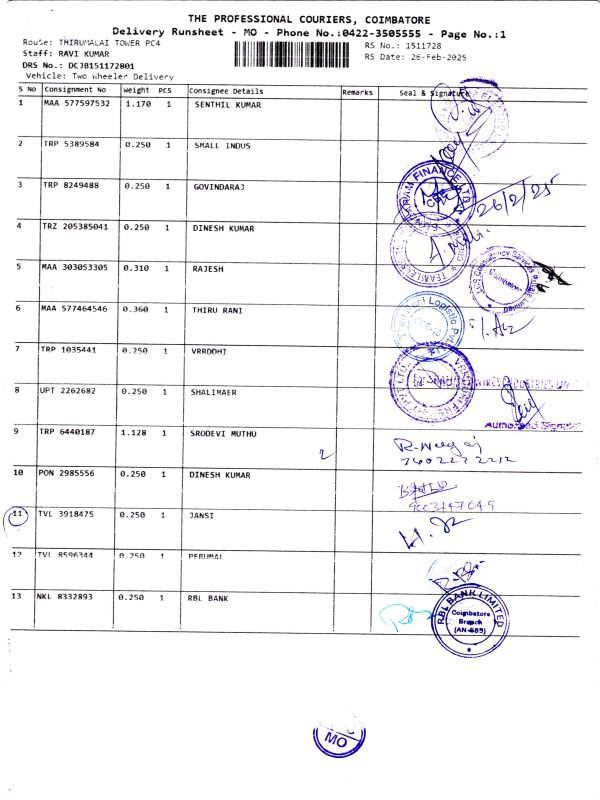 THE PROFESSIONAL COURIERS, COIMBATORE
Delivery Runsheet - MO - Phone No.:0422-3505555 - Page No.:1
Route: THIRUMALAI TOWER PC4
RS No.: 1511728
Staff: RAVI KUMAR
RS Date: 26-Feb-2025
DRS No.: DCJB151172801
Vehicle: Two Wheeler Delivery
S No Consignment No Weight PCS Consignee Details Remarks Seal & Signature
1 MAA 577597532 1.170 1 SENTHIL KUMAR
2 TRP 5389584 0.250 1 SMALL INDUS
3 TRP 8249488 0.250 1 GOVINDARAJ
26/2/25
4 TRZ 205385041 0.250 1 DINESH KUMAR
5 MAA 303053305 0.310 1 RAJESH
Coimbatore
6 MAA 577464546 0.360 1 THIRU RANI
7 TRP 1035441 0.250 1 VRRDDHI
8 UPT 2262682 0.250 1 SHALIMAER
Authorised Signatory
9 TRP 6440187 1.128 1 SRODEVI MUTHU
10 PON 2985556 0.250 1 DINESH KUMAR
11 TVL 3918475 0.250 1 JANSI
12 TVL 8596344 0.250 1 PERUMAL
13 NKL 8332893 0.250 1 RBL BANK
RBL BANK LIMITED
Coimbatore
Branch
MO